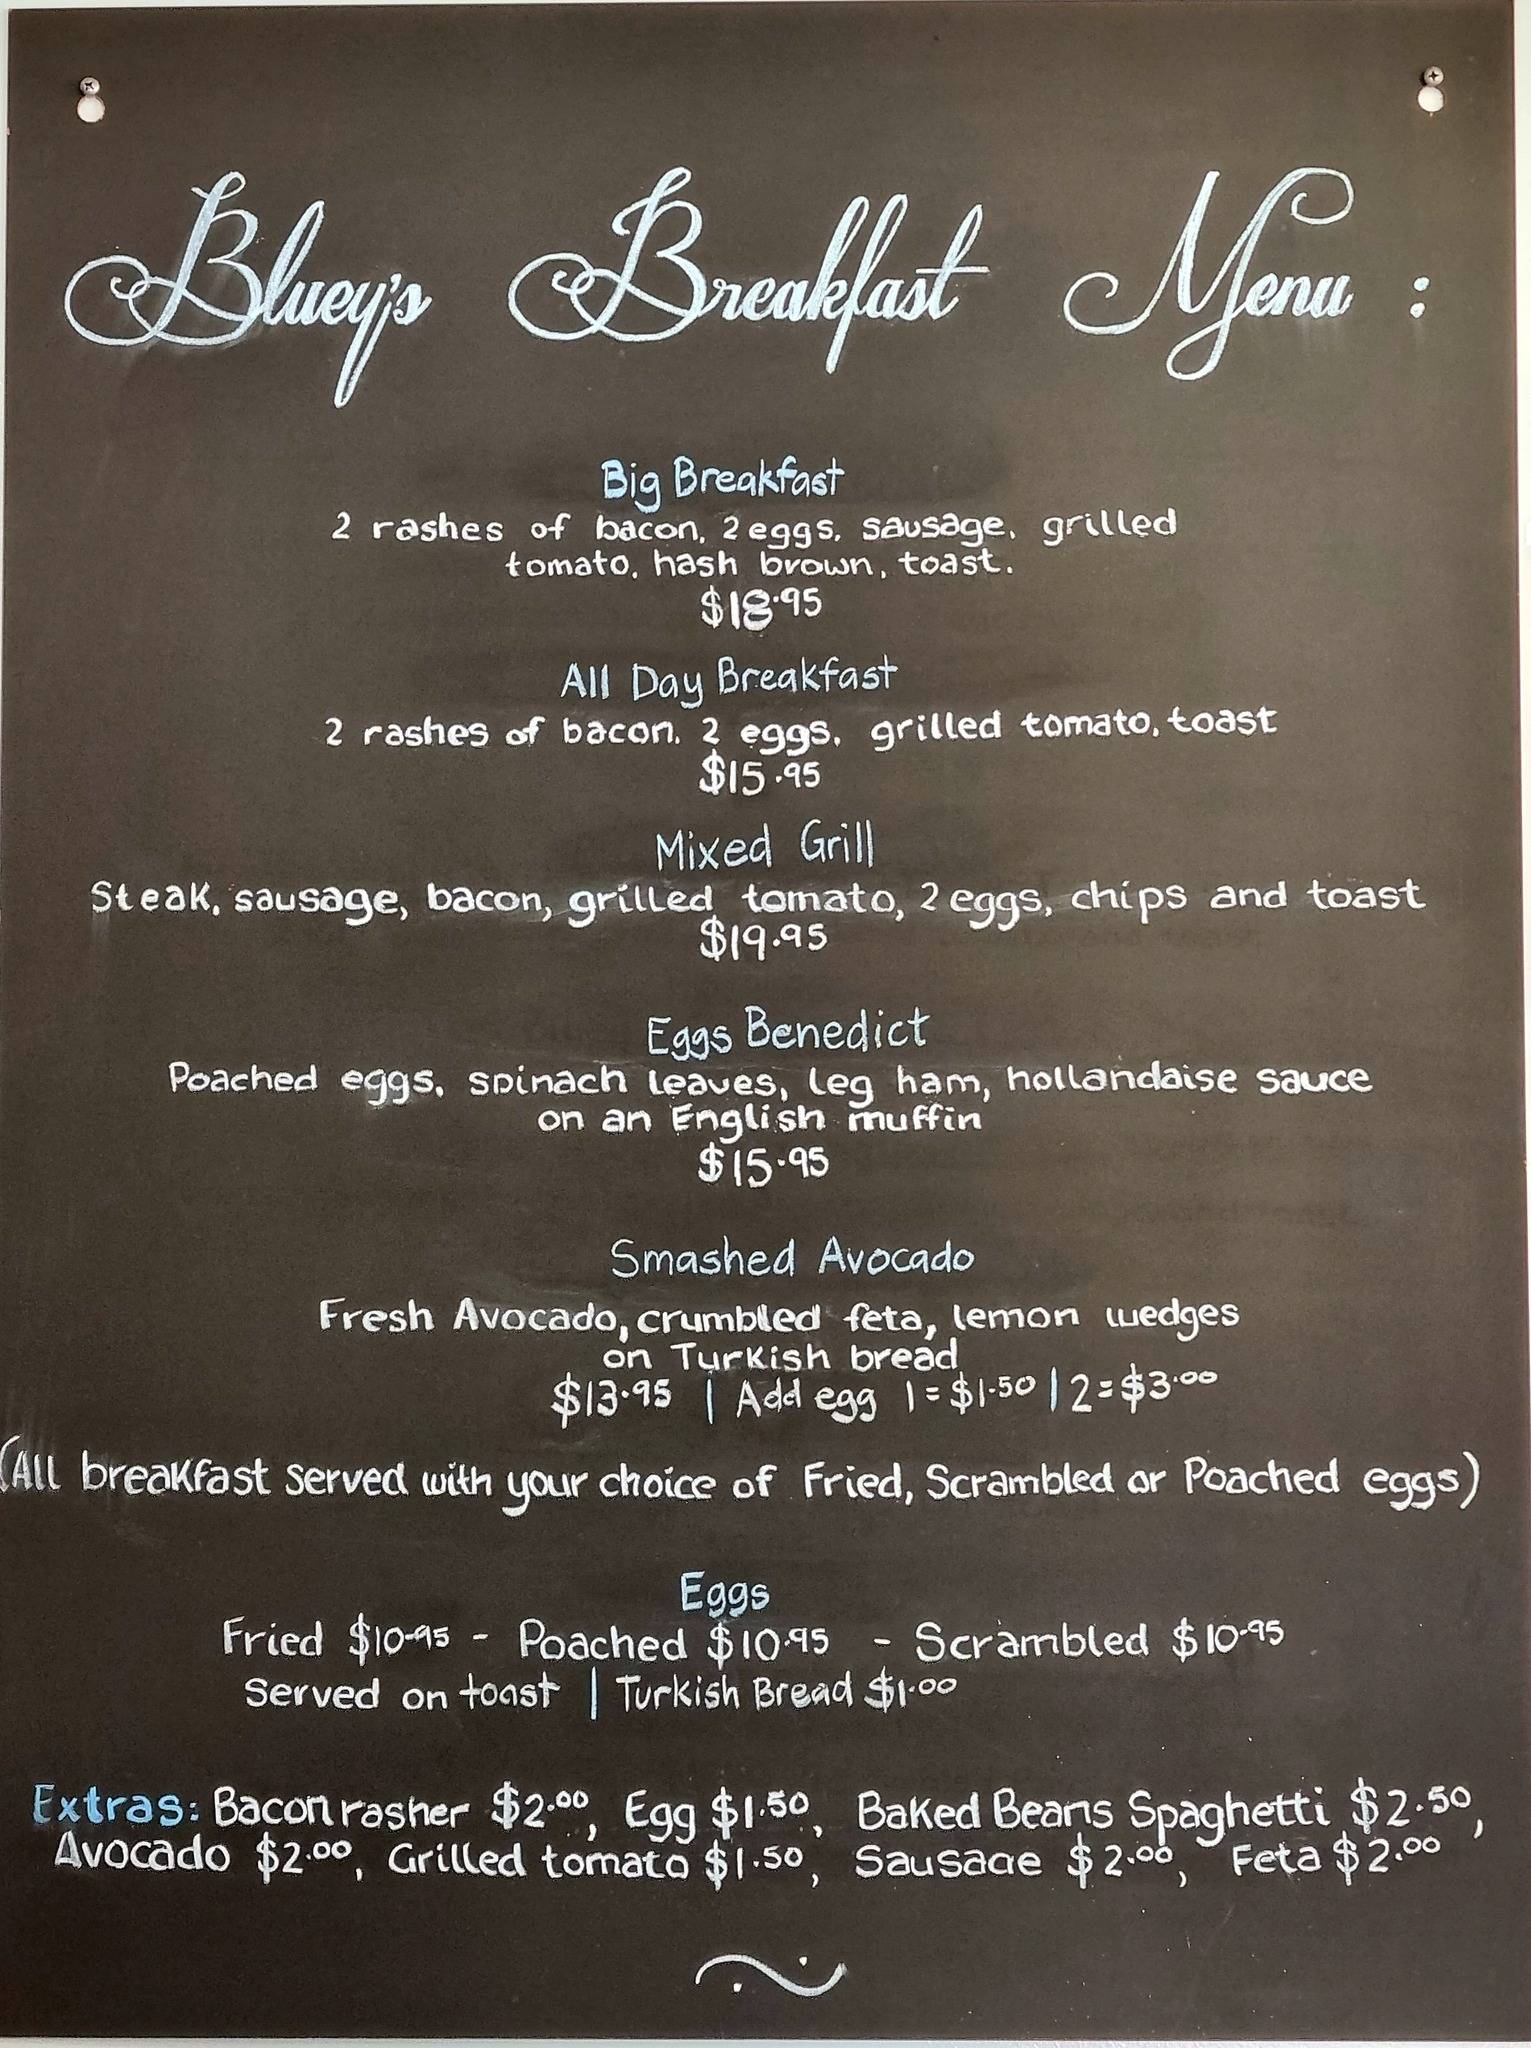 Bluey's Breakfast Menu :
Big Breakfast
2 rashes of bacon, 2 eggs, sausage, grilled
tomato, hash brown, toast.
$18.95
All Day Breakfast
2 rashes of bacon, 2 eggs, grilled tomato, toast
$15.95
Mixed Grill
Steak, sausage, bacon, grilled tomato, 2 eggs, chips and toast
$19.95
Eggs Benedict
Poached eggs, spinach leaves, leg ham, hollandaise sauce
on an English muffin
$15.95
Smashed Avocado
Fresh Avocado, crumbled feta, lemon wedges
on Turkish bread
$13.95 | Add egg 1 = $1.50 | 2 = $3.00
(All breakfast served with your choice of Fried, Scrambled or Poached eggs)
Eggs
Fried $10.95 - Poached $10.95 - Scrambled $10.95
Served on toast | Turkish Bread $1.00
Extras: Bacon rasher $2.00, Egg $1.50, Baked Beans Spaghetti $2.50,
Avocado $2.00, Grilled tomato $1.50, Sausage $2.00, Feta $2.00